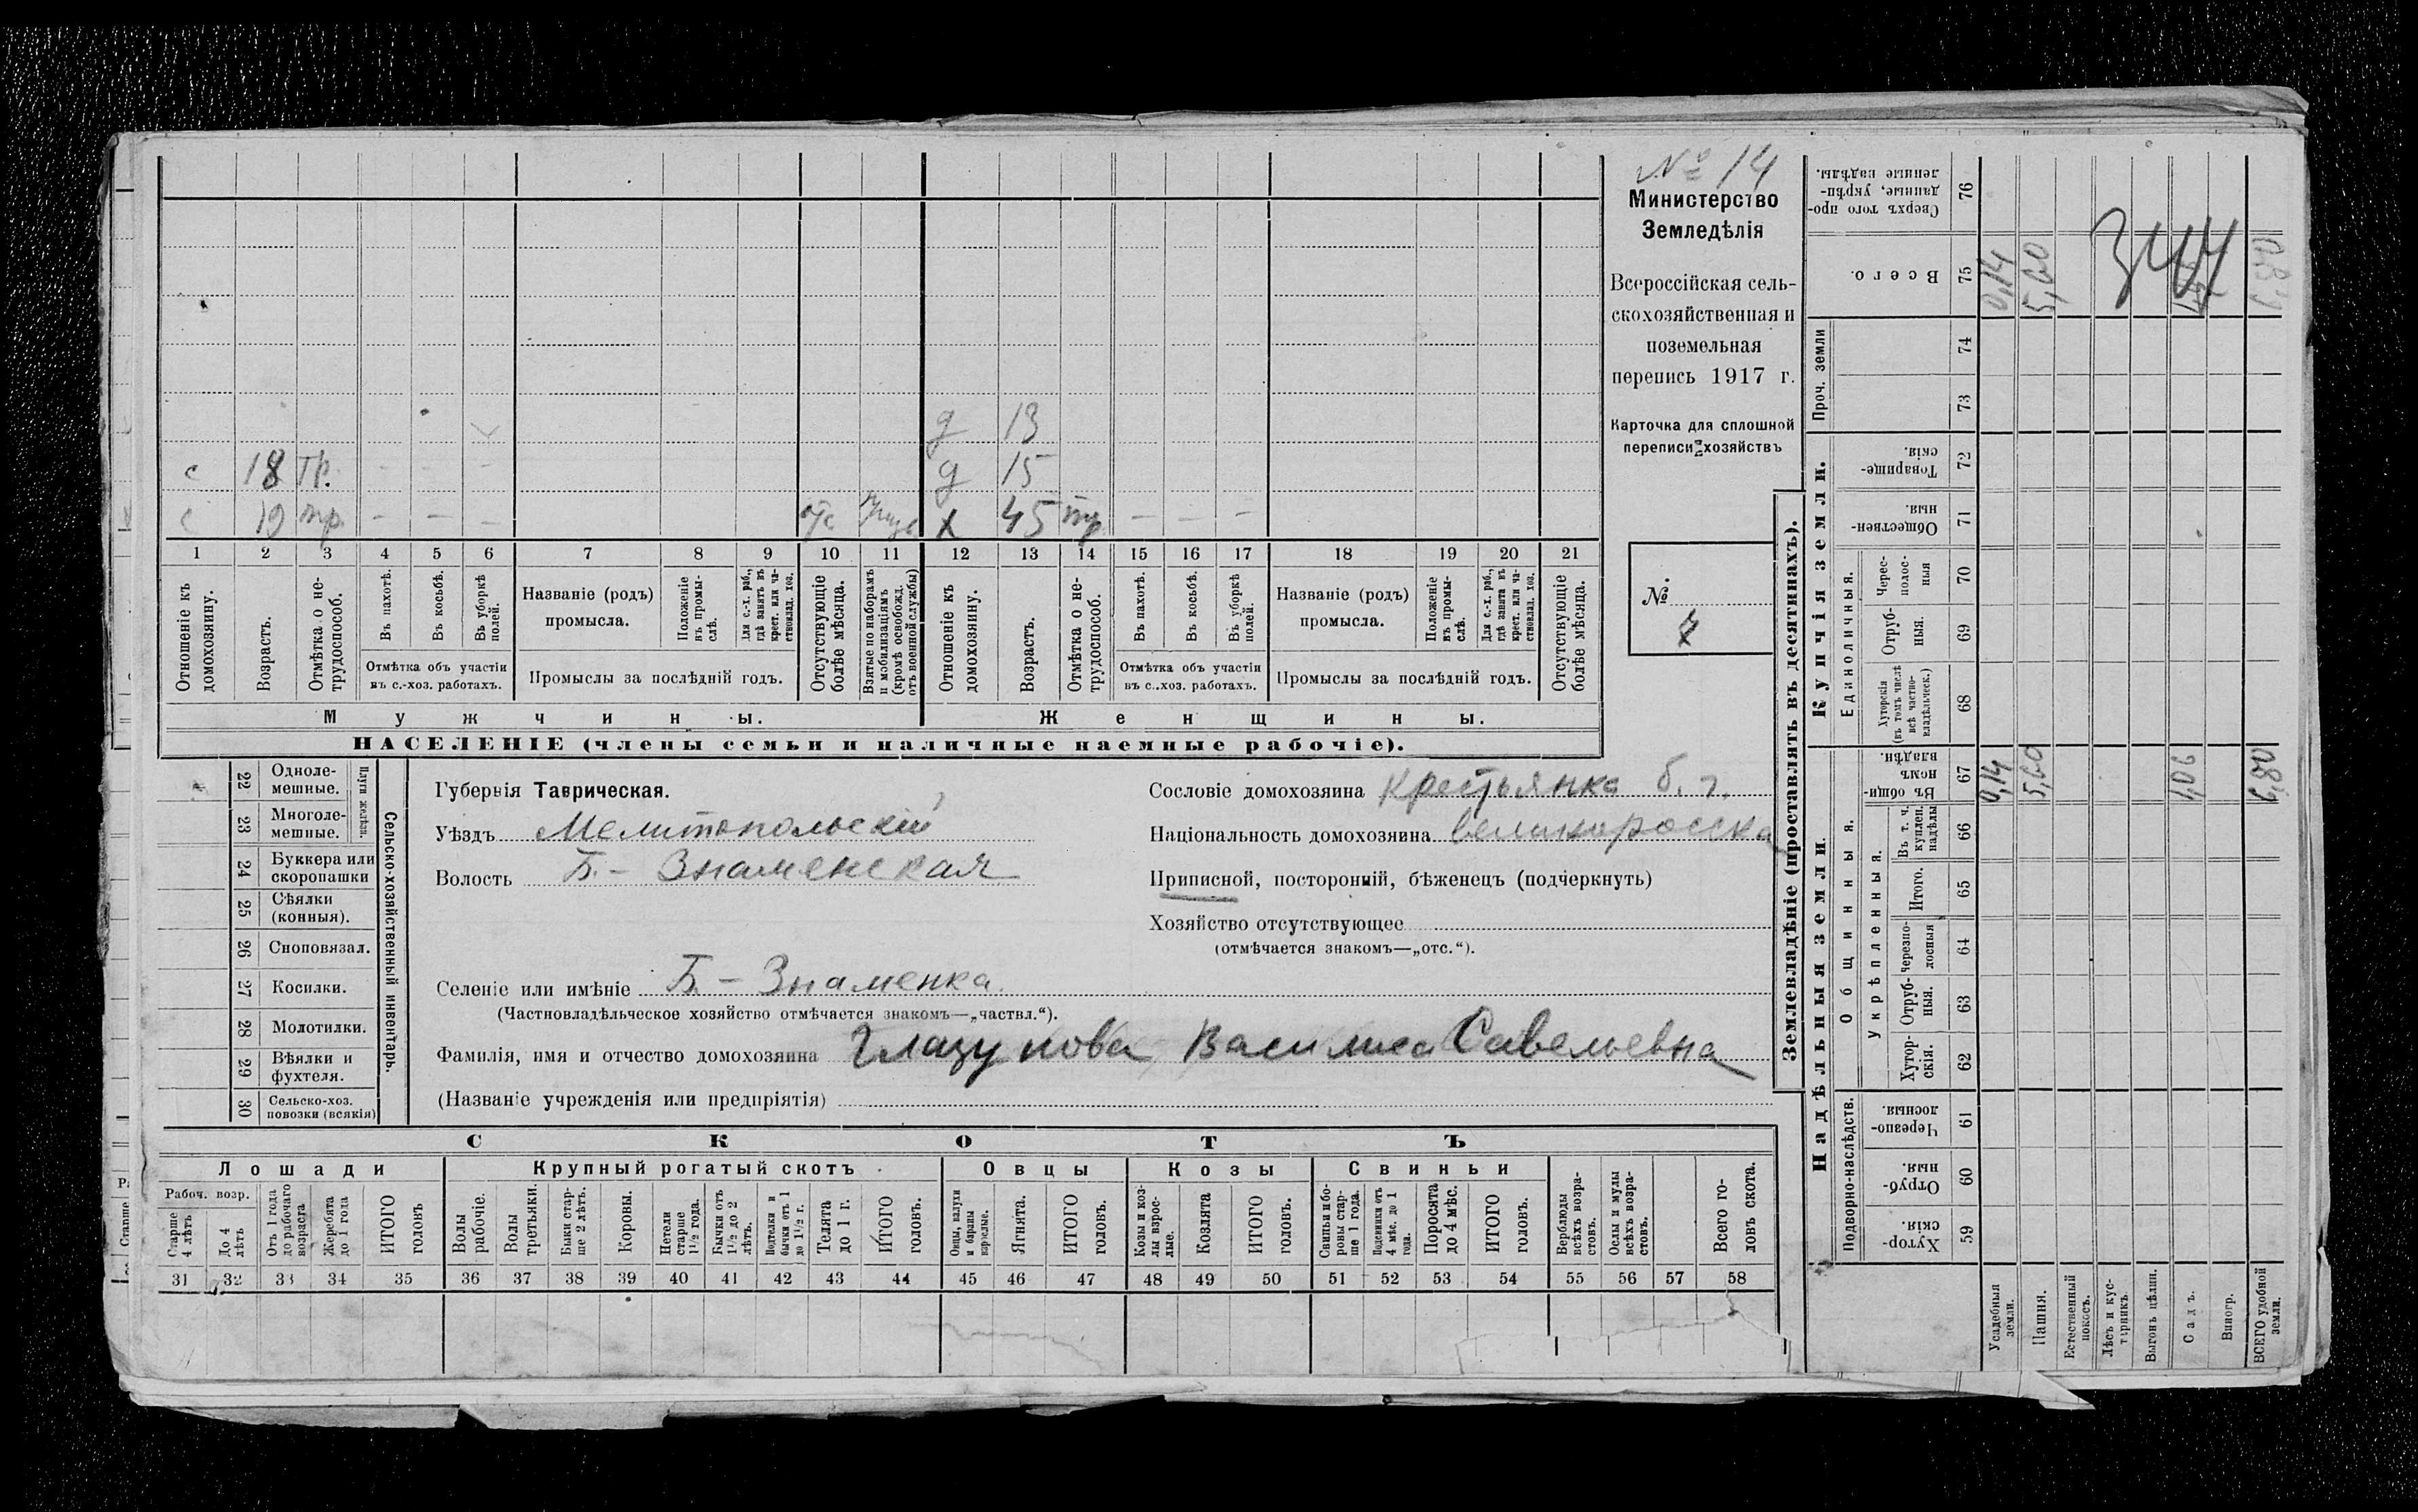 № 14
Министерство
Земледѣлія
Всероссійская сель-
скохозяйственная и
поземельная
перепись 1917 г.
Карточка для сплошной
переписи хозяйствъ
№
7
д 13
с 18 тр. - - - д 15
с 19 тр. - - - отс х 45 тр. - - -
1 2 3 4 5 6 7 8 9 10 11 12 13 14 15 16 17 18 19 20 21
Отношеніе къ домохозяину.
Возрастъ.
Отмѣтка о не-трудоспособ.
Въ пахотѣ.
Въ косьбѣ.
Въ уборкѣ полей.
Отмѣтка объ участіи
въ с.-хоз. работахъ.
Названіе (родъ)
промысла.
Положеніе въ промы-слѣ.
Для с.-х. раб., гдѣ занятъ въ крест. или ча-стновлад. хоз.
Промыслы за послѣдній годъ.
Отсутствующіе болѣе мѣсяца.
Взятые по наборамъ и мобилизаціямъ (кромѣ освобожд. отъ военной службы)
Отношеніе къ домохозяину.
Возрастъ.
Отмѣтка о не-трудоспособ.
Въ пахотѣ.
Въ косьбѣ.
Въ уборкѣ полей.
Отмѣтка объ участіи
въ с.-хоз. работахъ.
Названіе (родъ)
промысла.
Положеніе въ промы-слѣ.
Для с.-х. раб., гдѣ занята въ крест. или ча-стновлад. хоз.
Промыслы за послѣдній годъ.
Отсутствующіе болѣе мѣсяца.
Мужчины. Женщины.
НАСЕЛЕНІЕ (члены семьи и наличные наемные рабочіе).
22 Одноле-мешные.
23 Многоле-мешные.
Плуги желѣзн.
24 Буккера или скоропашки
25 Сѣялки (конныя).
26 Сноповязал.
27 Косилки.
28 Молотилки.
29 Вѣялки и фухтеля.
30 Сельско-хоз. повозки (всякія)
Сельско-хозяйственный инвентарь.
Губернія Таврическая.
Уѣздъ Мелитопольскій
Волость Б.-Знаменская
Селеніе или имѣніе Б-Знаменка.
(Частновладѣльческое хозяйство отмѣчается знакомъ—„частвл.“).
Фамилія, имя и отчество домохозяина Глазунова Василиса Савельевна
(Названіе учрежденія или предпріятія)
Сословіе домохозяина крестьянка б. г.
Національность домохозяина великоросска
Приписной, посторонній, бѣженецъ (подчеркнуть)
Хозяйство отсутствующее
(отмѣчается знакомъ—„отс.“).
СКОТЪ
Лошади Крупный рогатый скотъ Овцы Козы Свиньи
Рабоч. возр.
Старше 4 лѣтъ
До 4 лѣтъ
Отъ 1 года до рабочаго возраста
Жеребята до 1 года
ИТОГО головъ
Волы рабочіе.
Волы третьяки.
Быки стар-ше 2 лѣтъ.
Коровы.
Нетели старше 1½ года.
Бычки отъ 1½ до 2 лѣтъ.
Подтелки и бычки отъ 1 до 1½ г.
Телята до 1 г.
ИТОГО головъ.
Овцы, валухи и бараны взрослые.
Ягнята.
ИТОГО головъ.
Козы и коз-лы взрос-лые.
Козлята
ИТОГО головъ.
Свиньи и бо-ровы стар-ше 1 года.
Подсвинки отъ 4 мѣс. до 1 года.
Поросята до 4 мѣс.
ИТОГО головъ.
Верблюды всѣхъ возра-стовъ.
Ослы и мулы всѣхъ возра-стовъ.
Всего го-ловъ скота.
31 32 33 34 35 36 37 38 39 40 41 42 43 44 45 46 47 48 49 50 51 52 53 54 55 56 57 58
Землевладѣніе (проставлять въ десятинахъ).
Надѣльныя земли. Купчія земли.
Проч. земли
Подворно-наслѣдств.
Общинныя.
Укрѣпленныя.
Единоличныя.
Сверхъ того про-данные, укрѣп-ленные надѣлы. 76
Всего. 75
74
73
Товарище-скія. 72
Обществен-ныя. 71
Черес-полос-ныя 70
Отруб-ныя. 69
Хуторскія (въ томъ числѣ всѣ частно-владѣльческ.) 68
Въ общин-номъ владѣн. 67
Въ т. ч. куплен. надѣлы 66
Итого. 65
Черезпо-лосныя 64
Отруб-ныя. 63
Хутор-скія. 62
Черезпо-лосныя. 61
Отруб-ныя. 60
Хутор-скія. 59
Усадебныя земли. 0,14 0,14
Пашня. 5,60 5,60
Естественный покосъ.
Лѣсъ и кус-тарникъ.
Выгонъ цѣлин.
Садъ. 1,06
Виногр.
ВСЕГО удобной земли. 6,80 6,80
344